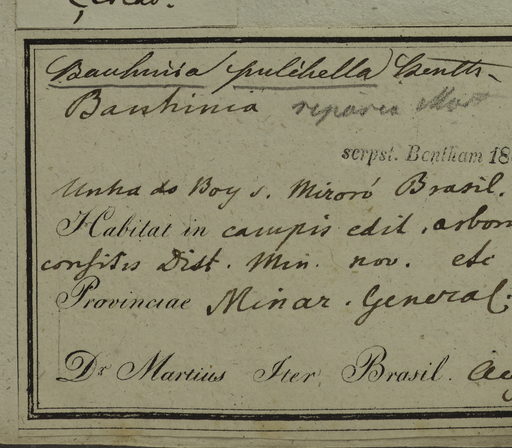 Bauhinia pulchella Benth.
Bauhinia riparia Mart
scripst. Bentham 18
Unha do Boy s. Miroró Brasil.
Habitat in campis edit. arbor
consitis Dist. Min. nov. etc
Provinciae Minar. General.
Dr Martius Iter Brasil.